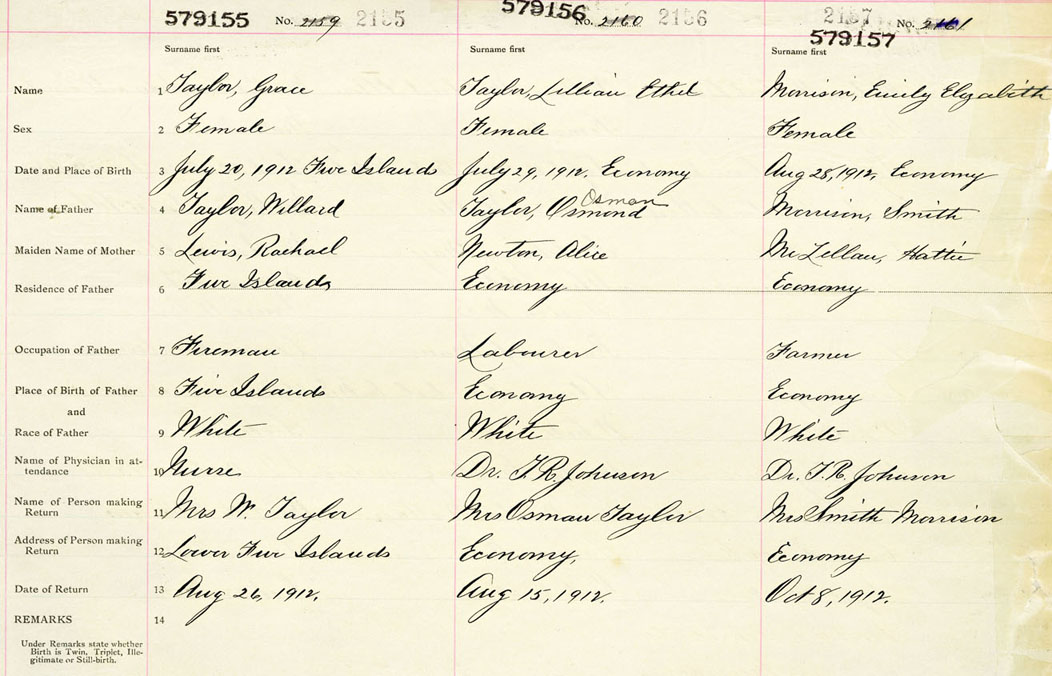 579155 No. 2159 2155 579156 No. 2160 2156 2157 No. 2161
579157
Surname first Surname first Surname first
Name 1 Taylor, Grace Taylor, Lillian Ethel Morrison, Emily Elizabeth
Sex 2 Female Female Female
Date and Place of Birth 3 July 20, 1912 Five Islands July 29, 1912, Economy Aug 28, 1912, Economy
Osman
Name of Father 4 Taylor, Willard Taylor, Osmond Morrison, Smith
Maiden Name of Mother 5 Lewis, Rachael Newton, Alice McLellan, Hattie
Residence of Father 6 Five Islands Economy Economy
Occupation of Father 7 Fireman Labourer Farmer
Place of Birth of Father 8 Five Islands Economy Economy
and
Race of Father 9 White White White
Name of Physician in at-
tendance 10 Nurse Dr. T. R. Johnson Dr. T. R. Johnson
Name of Person making
Return 11 Mrs W. Taylor Mrs Osman Taylor Mrs Smith Morrison
Address of Person making
Return 12 Lower Five Islands Economy, Economy
Date of Return 13 Aug 26, 1912. Aug 15, 1912. Oct 8, 1912.
REMARKS 14
Under Remarks state whether
Birth is Twin, Triplet, Ille-
gitimate or Still-birth.